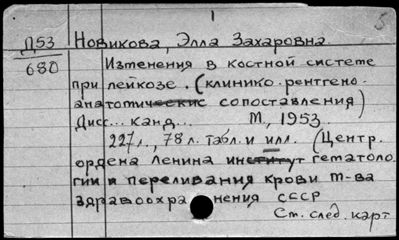 1
5
Д53 Новикова, Элла Захаровна
680 Изменения в костной системе
при лейкозе. (клинико-рентгено-
анатомические сопоставления)
Дисс... канд... М., 1953.
227л., 78 л. табл. и илл. (Центр.
ордена Ленина институт гематоло
гии и переливания крови м-ва
здравоохранения СССР
См. след. карт